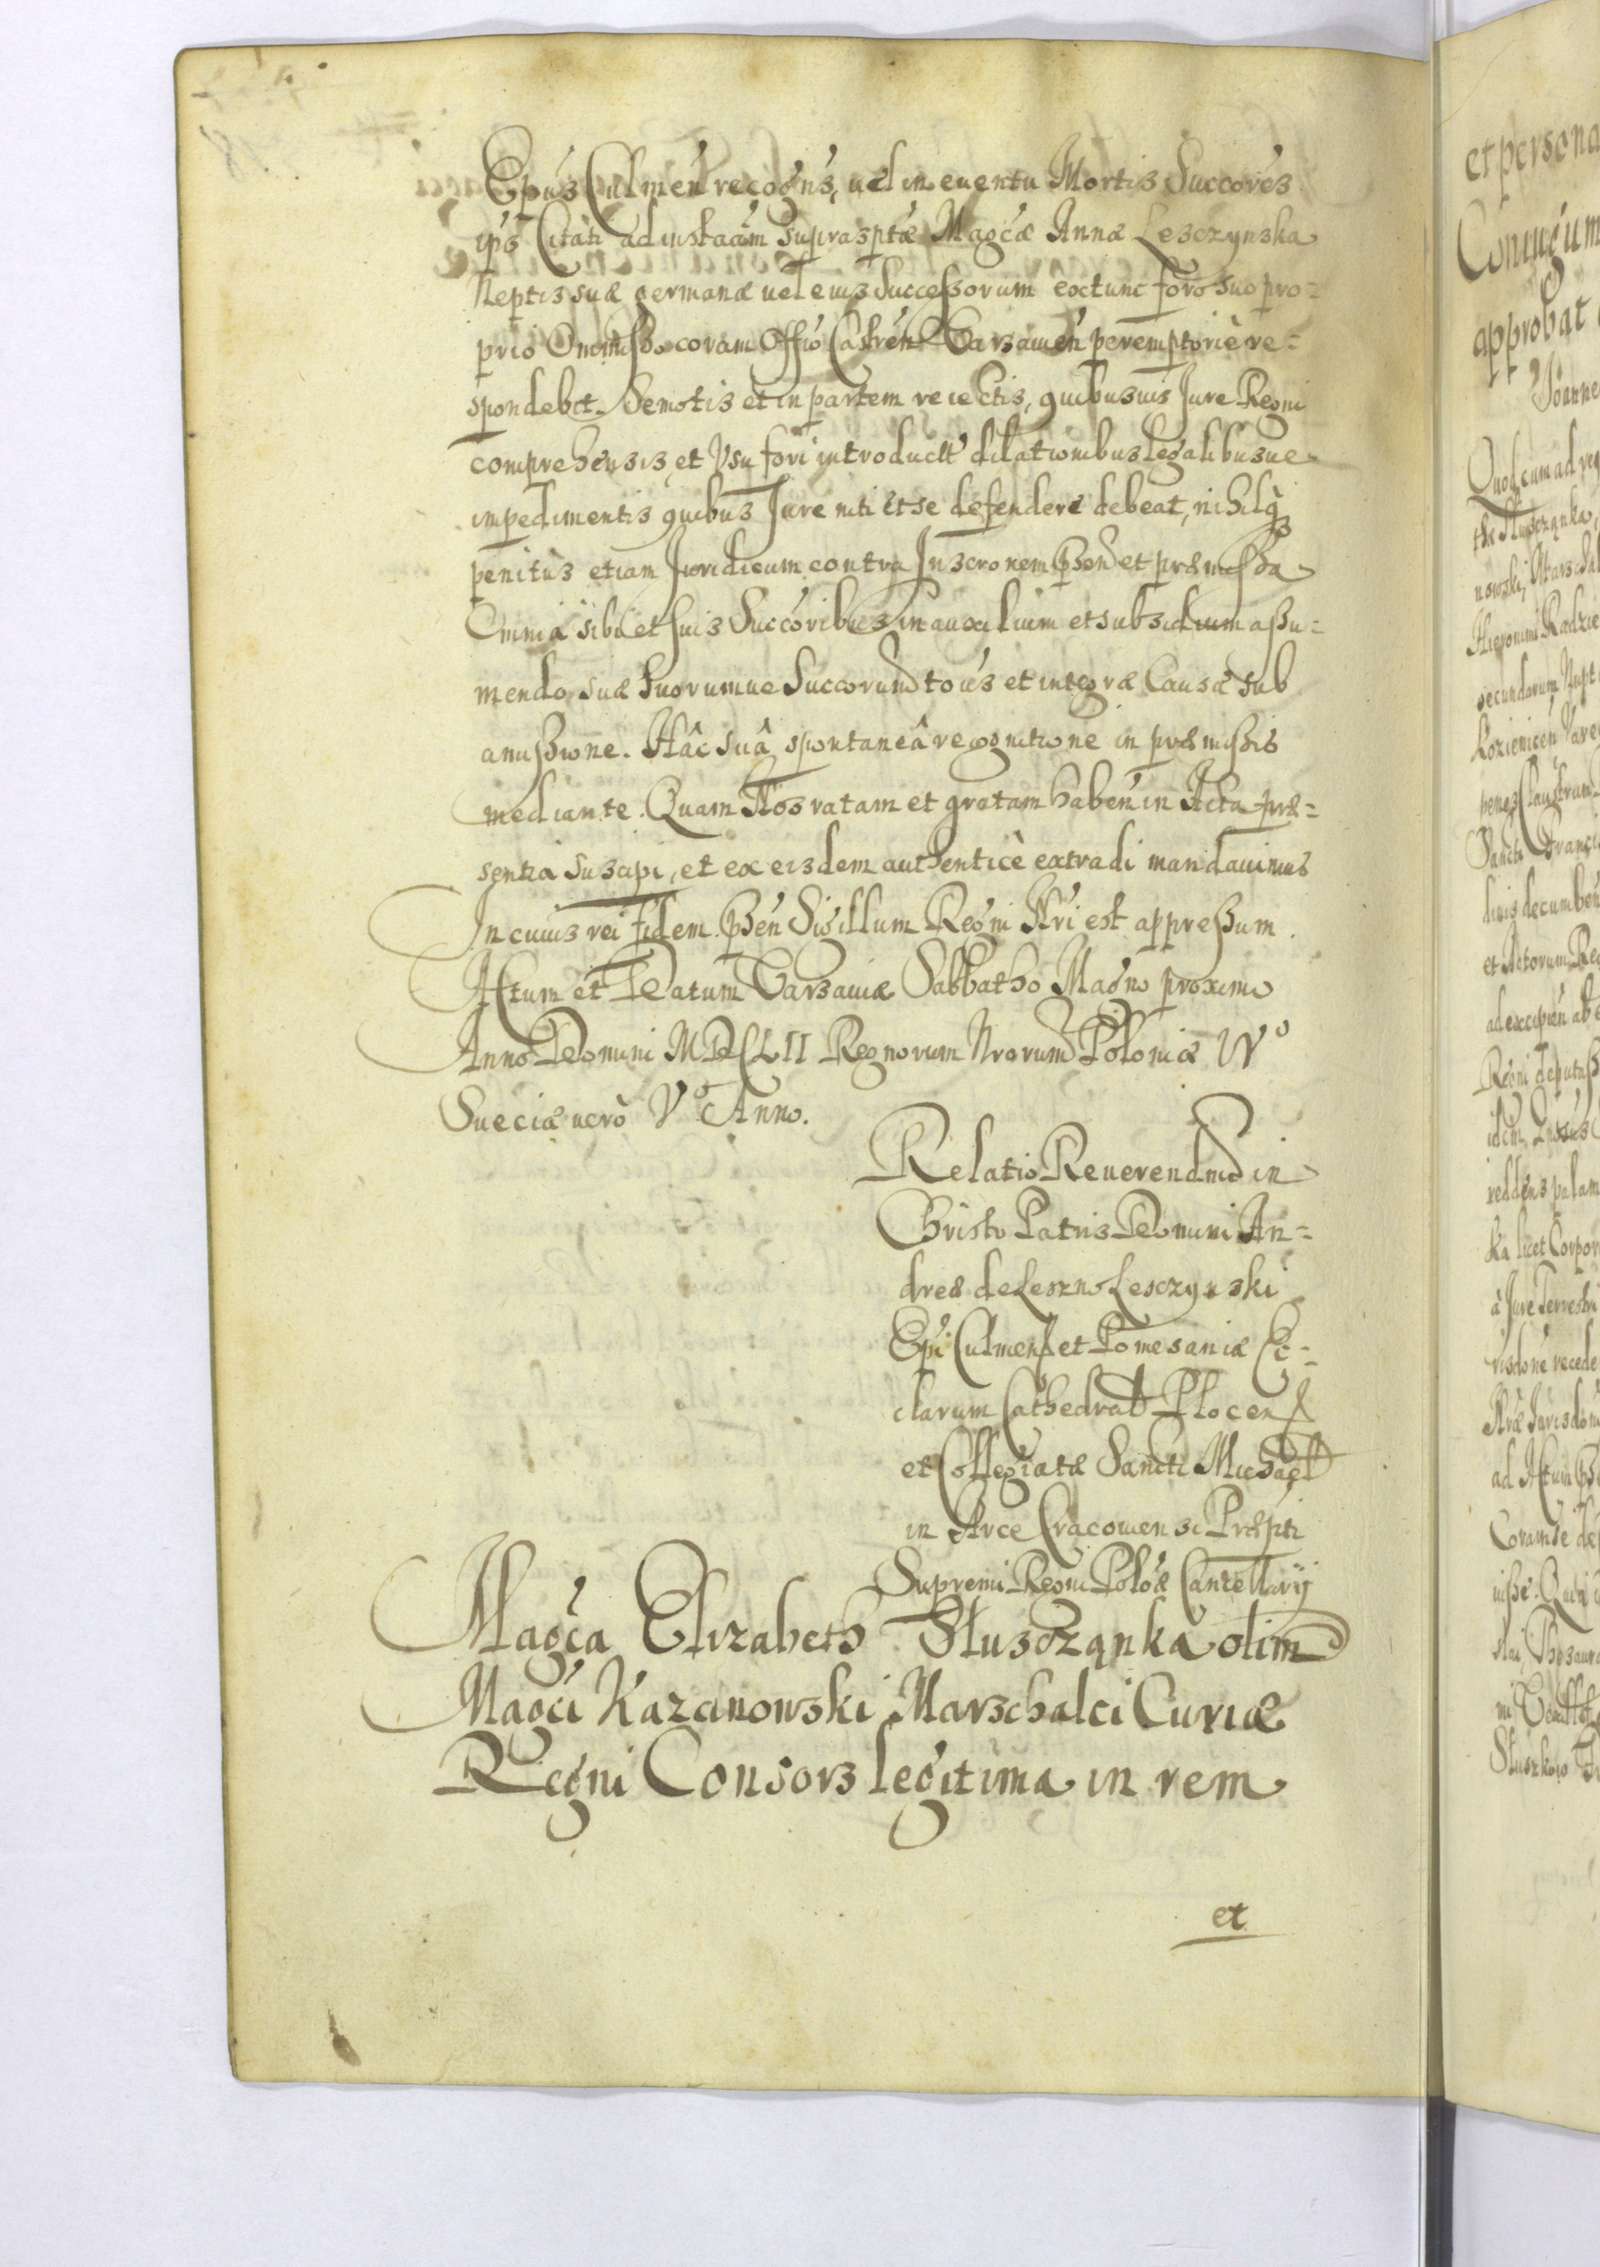 Epus Culmeń recogns, uel in euentu Mortis Succores
ips Citati ad instaam suprasptæ Magcæ Annæ Lesczynska
Neptis suæ germanæ uel eius Successorum extunc foro suo pro=
prio Omisso coram Offio Castreń Varsauień peremptoriè re=
spondebit. Remotis et in partem reiectis, quibusuis Jure Regni
comprehensis, et Vsu fori introductt dilationibus legalibusue
impedimentis quibus Jure niti et se defendere debeat, nihilq
penitùs etiam Juridicum contra Inscronem psen et præmissa
Omnia sibi et suis Succoribus in auxilium et subsidium assu=
mendo, suæ suorumue Succorum totius et integræ Causæ sub
amissione. Hâc suâ spontaneâ recognitione in præmissis
mediante. Quam Nos ratam et gratam habeń in Acta præ=
sentia suscipi, et ex eisdem authenticè extradi mandauimus
In cuius rei fidem pseń Sigillum Regni Nri est appressum.
Actum et Datum Varsauiæ Sabbatho Magno proximo
Anno Domini MDCLII Regnorum Nrorum Poloniæ IVº
Sueciæ uerò Vº Anno.
Relatio Reuerendmi in
Christo Patris Domini An=
dreæ de Leszno Lesczynski
Epi Culmens et Pomesaniæ Ec=
clarum Cathedral Plocens
et Collegiatæ Sancti Michael
in Arce Cracouiensi Præpti
Supremi Regni Poloæ Cancellarij
Magca Elizabeth Sluszcząnka olim
Magci Kazanowski Marschalci Curiæ
Regni Consors legitima in rem
et
et persona
Coniugum
approbat
Joanne
Quod cum ad
Hieronimi Radzie
secundarum Nupt
Sancti Franci
et Actorum Reg
reddens palam
ka licet Corpor
à Jure Terrestri